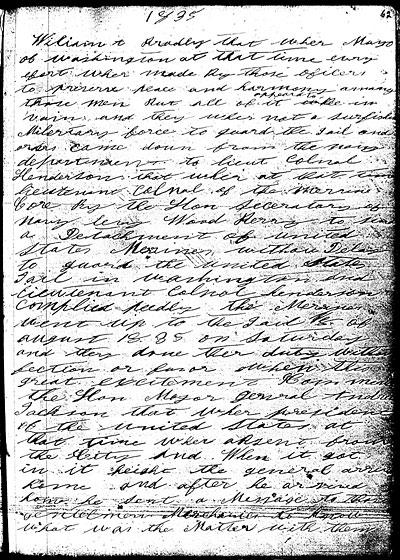 1835
62
William A Bradley that wher Mayo
of washington at that time evry
efort wher made By those oficers
to preserve peace and harmony among
those men But all of it in
vain and they wher not a surficien
Milertary force to guard the Jail and
orders came down from the navy
department to lieut Colnal
Henderson that wher at that time
lieutenant Colnal of the Merrine
Core By the Hon Secretary of
navy Levy Wood Berry to
a Detachment of united
States Merines without Delay
to guard the united State
Jail in washington and
lieutenant Colnal henderson
Complied the Merines
went up to the Jail of
august 1835 on Saturday
and they done ther duty without
fection or favor when this
great excitement
the Hon Major genral
Jackson that wher presidend
of the united States at
that time wher absent from
the City and When it got
in it height the general
home and after he arived
home he sent a Message to those
gentlemen to know
what was the Matter with them